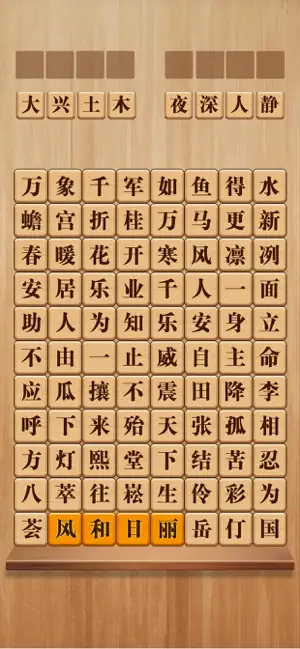 大兴土木 夜深人静
万象千军如鱼得水
蟾宫折桂万马更新
春暖花开寒风凛冽
安居乐业千人一面
助人为知乐安身立
不由一止威自主命
应瓜攘不震田降李
呼下来殆天张孤相
方灯熙堂下结苦忍
八萃往崧生伶彩为
荟风和日丽岳仃国